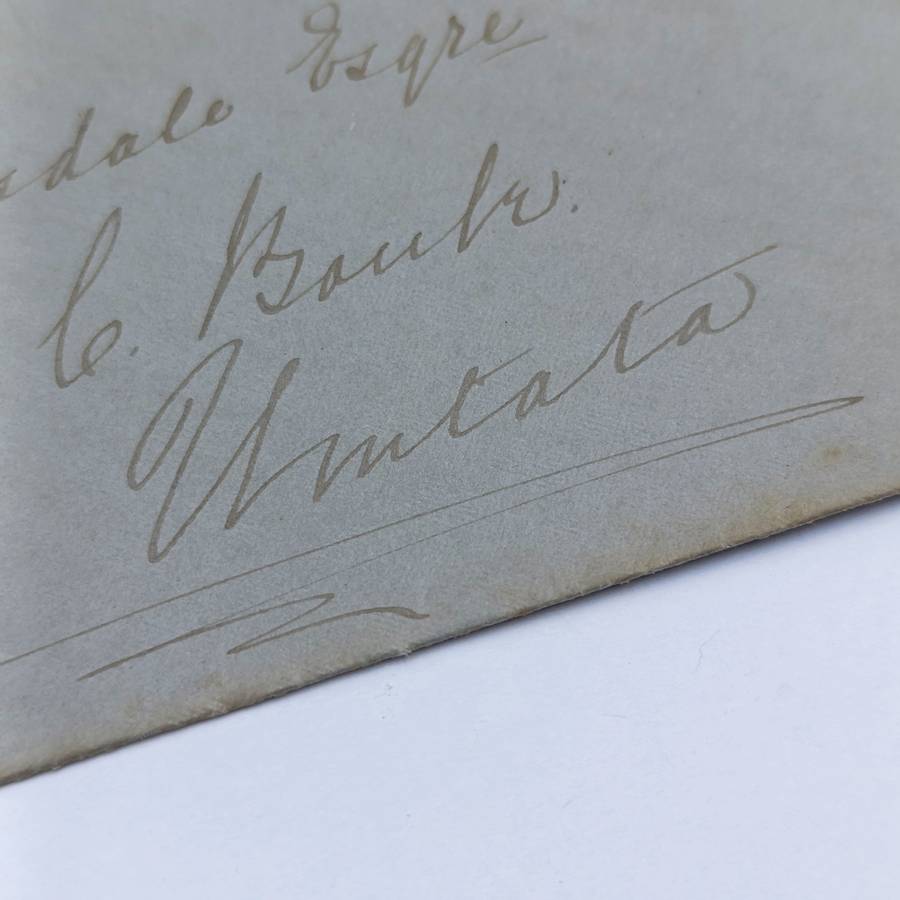 sdale Esqre
C. Bank.
Umtata